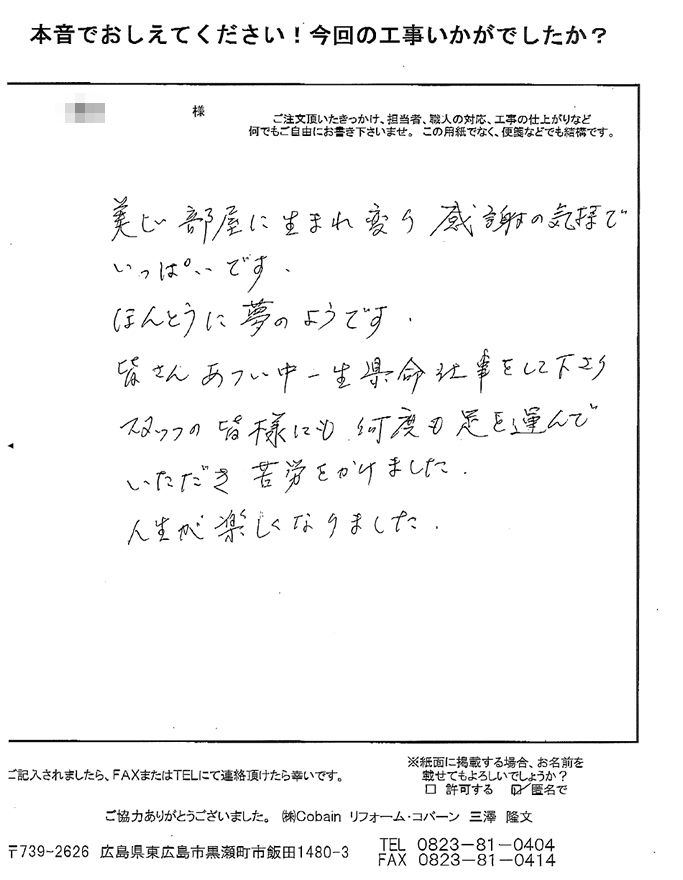 本音でおしえてください！今回の工事いかがでしたか？
様
ご注文頂いたきっかけ、担当者、職人の対応、工事の仕上がりなど
何でもご自由にお書き下さいませ。この用紙でなく、便箋などでも結構です。
美しい部屋に生まれ変り 感謝の気持で
いっぱいです．
ほんとうに夢のようです．
皆さんあつい中一生県命仕事をして下さり
スタッフの皆様にも何度も足を運んで
いただき苦労をかけました．
人生が楽しくなりました．
ご記入されましたら、FAXまたはTELにて連絡頂けたら幸いです。
※紙面に掲載する場合、お名前を
載せてもよろしいでしょうか？
□ 許可する ☑匿名で
ご協力ありがとうございました。㈱Cobain リフォーム・コバーン 三澤 隆文
〒739-2626 広島県東広島市黒瀬町市飯田1480-3
TEL 0823-81-0404
FAX 0823-81-0414